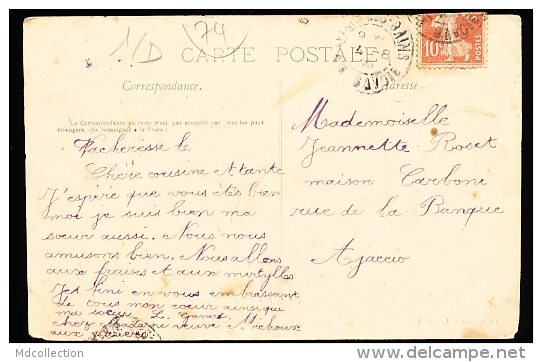 1/D
74
CARTE POSTALE
Correspondance.
Adresse
(La Correspondance au recto n'est pas acceptée par tous les pays
étrangers. (Se renseigner à la Poste.)
10
POSTES
Vacheresse le
Chère cousine et tante
J'espère que vous êtes bien
moi je suis bien ma
sœur aussi. Nous nous
amusons bien. Nous allons
aux fraises et aux myrtylles
Je fini en vous embrassant
de tous mon cœur ainsi que
ma sœur L.
chez Madame veuve Michoux
aux
Mademoiselle
Jeannette Roset
maison Carboni
rue de la Banque
Ajaccio
Mdcollection
delcampe.net